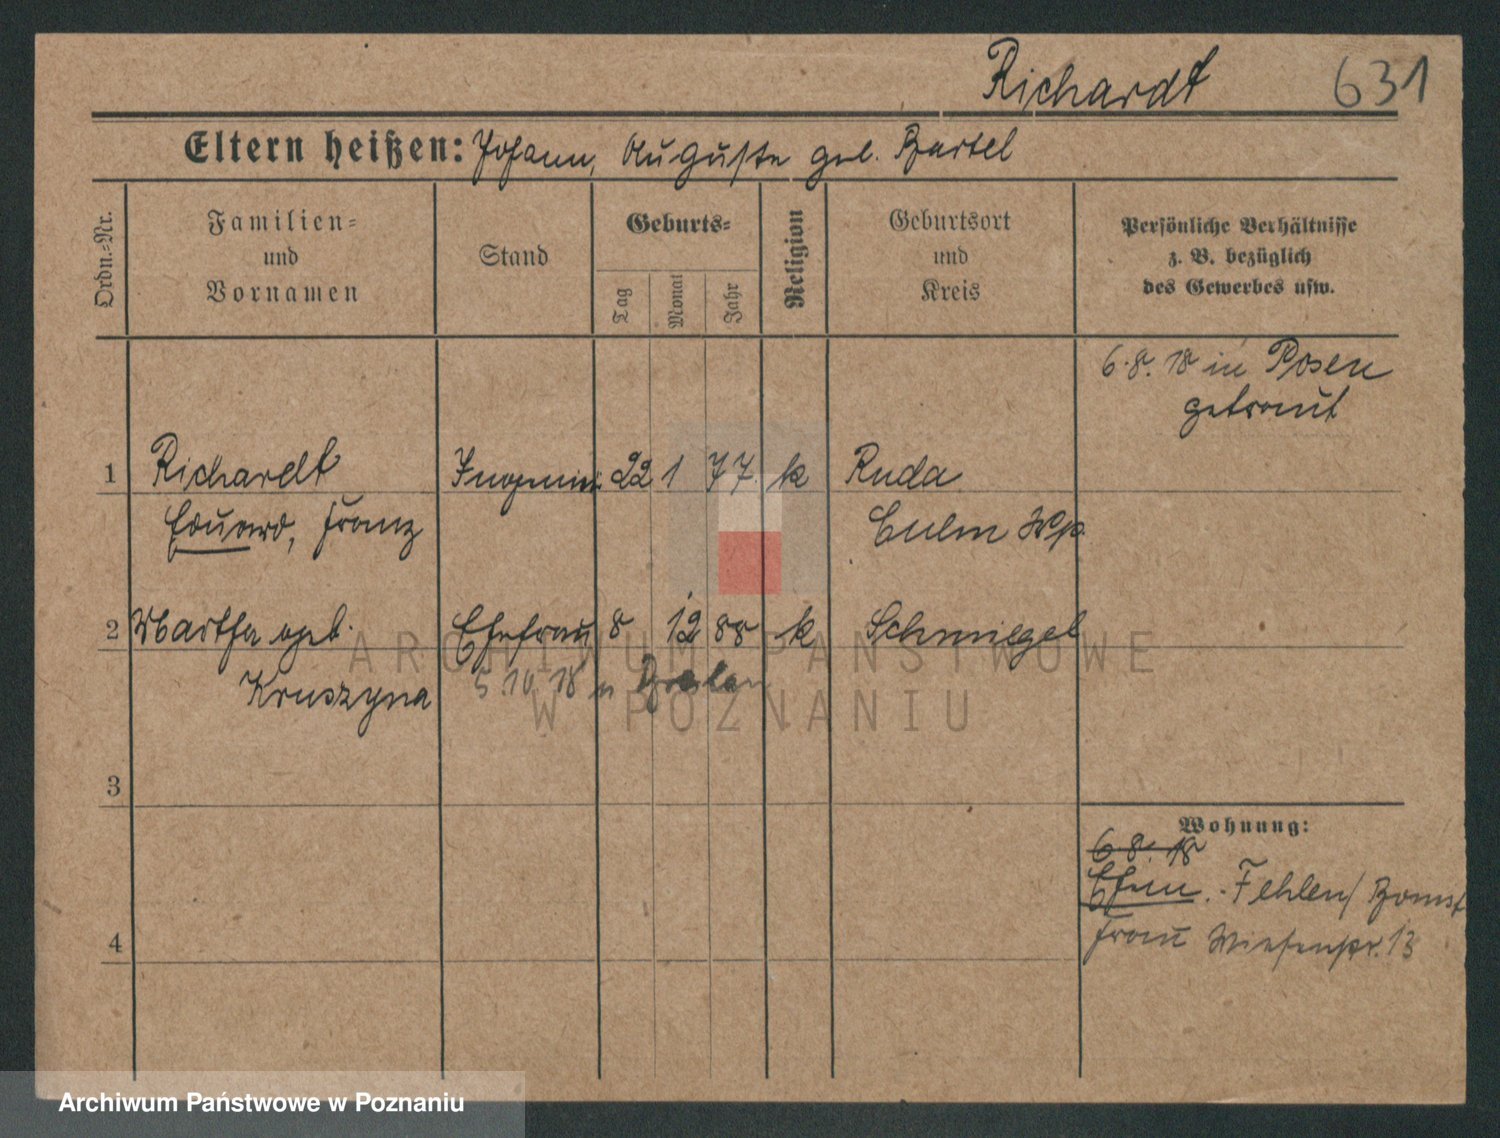 Richardt 631
Eltern heißen: Johann, Auguste geb. Bartel
Ordn.-Nr.
Familien=
und
Vornamen
Stand
Geburts=
Tag
Monat
Jahr
Religion
Geburtsort
und
Kreis
Persönliche Verhältnisse
z. B. bezüglich
des Gewerbes usw.
6.8.18 in Posen
getraut
1 Richardt 22 1 77. k Ruda
Eduard, Franz Culm Wp.
2 Martha geb. Ehefrau 8 12 88 k Schmiegel
Kruszyna 5.10.18 n Breslau
3
Wohnung:
6.8.18
Ehem. - Fehlen/Bomst
4 Frau Wiesenstr. 13
ARCHIWUM PAŃSTWOWE
W POZNANIU
Archiwum Państwowe w Poznaniu